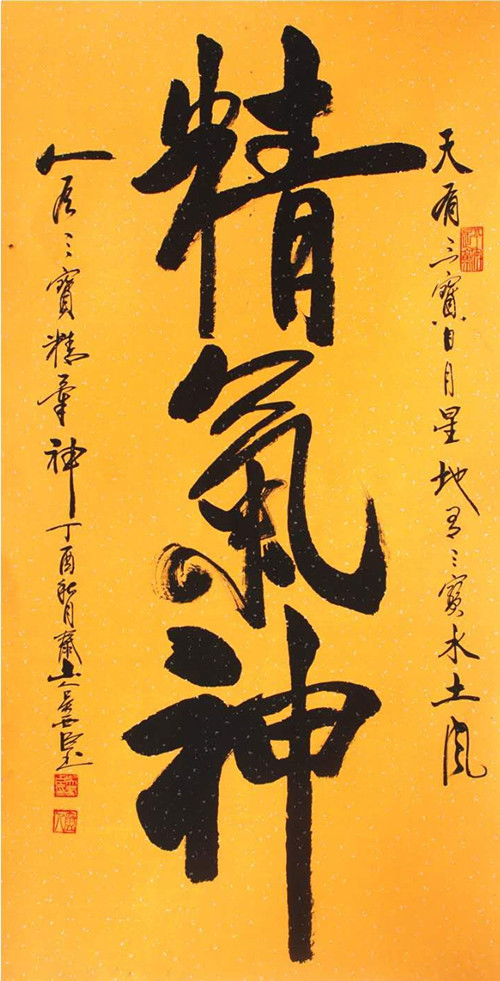 天有三寶日月星地有三寶水土風
精氣神
人有三寶精氣神丁酉秋月